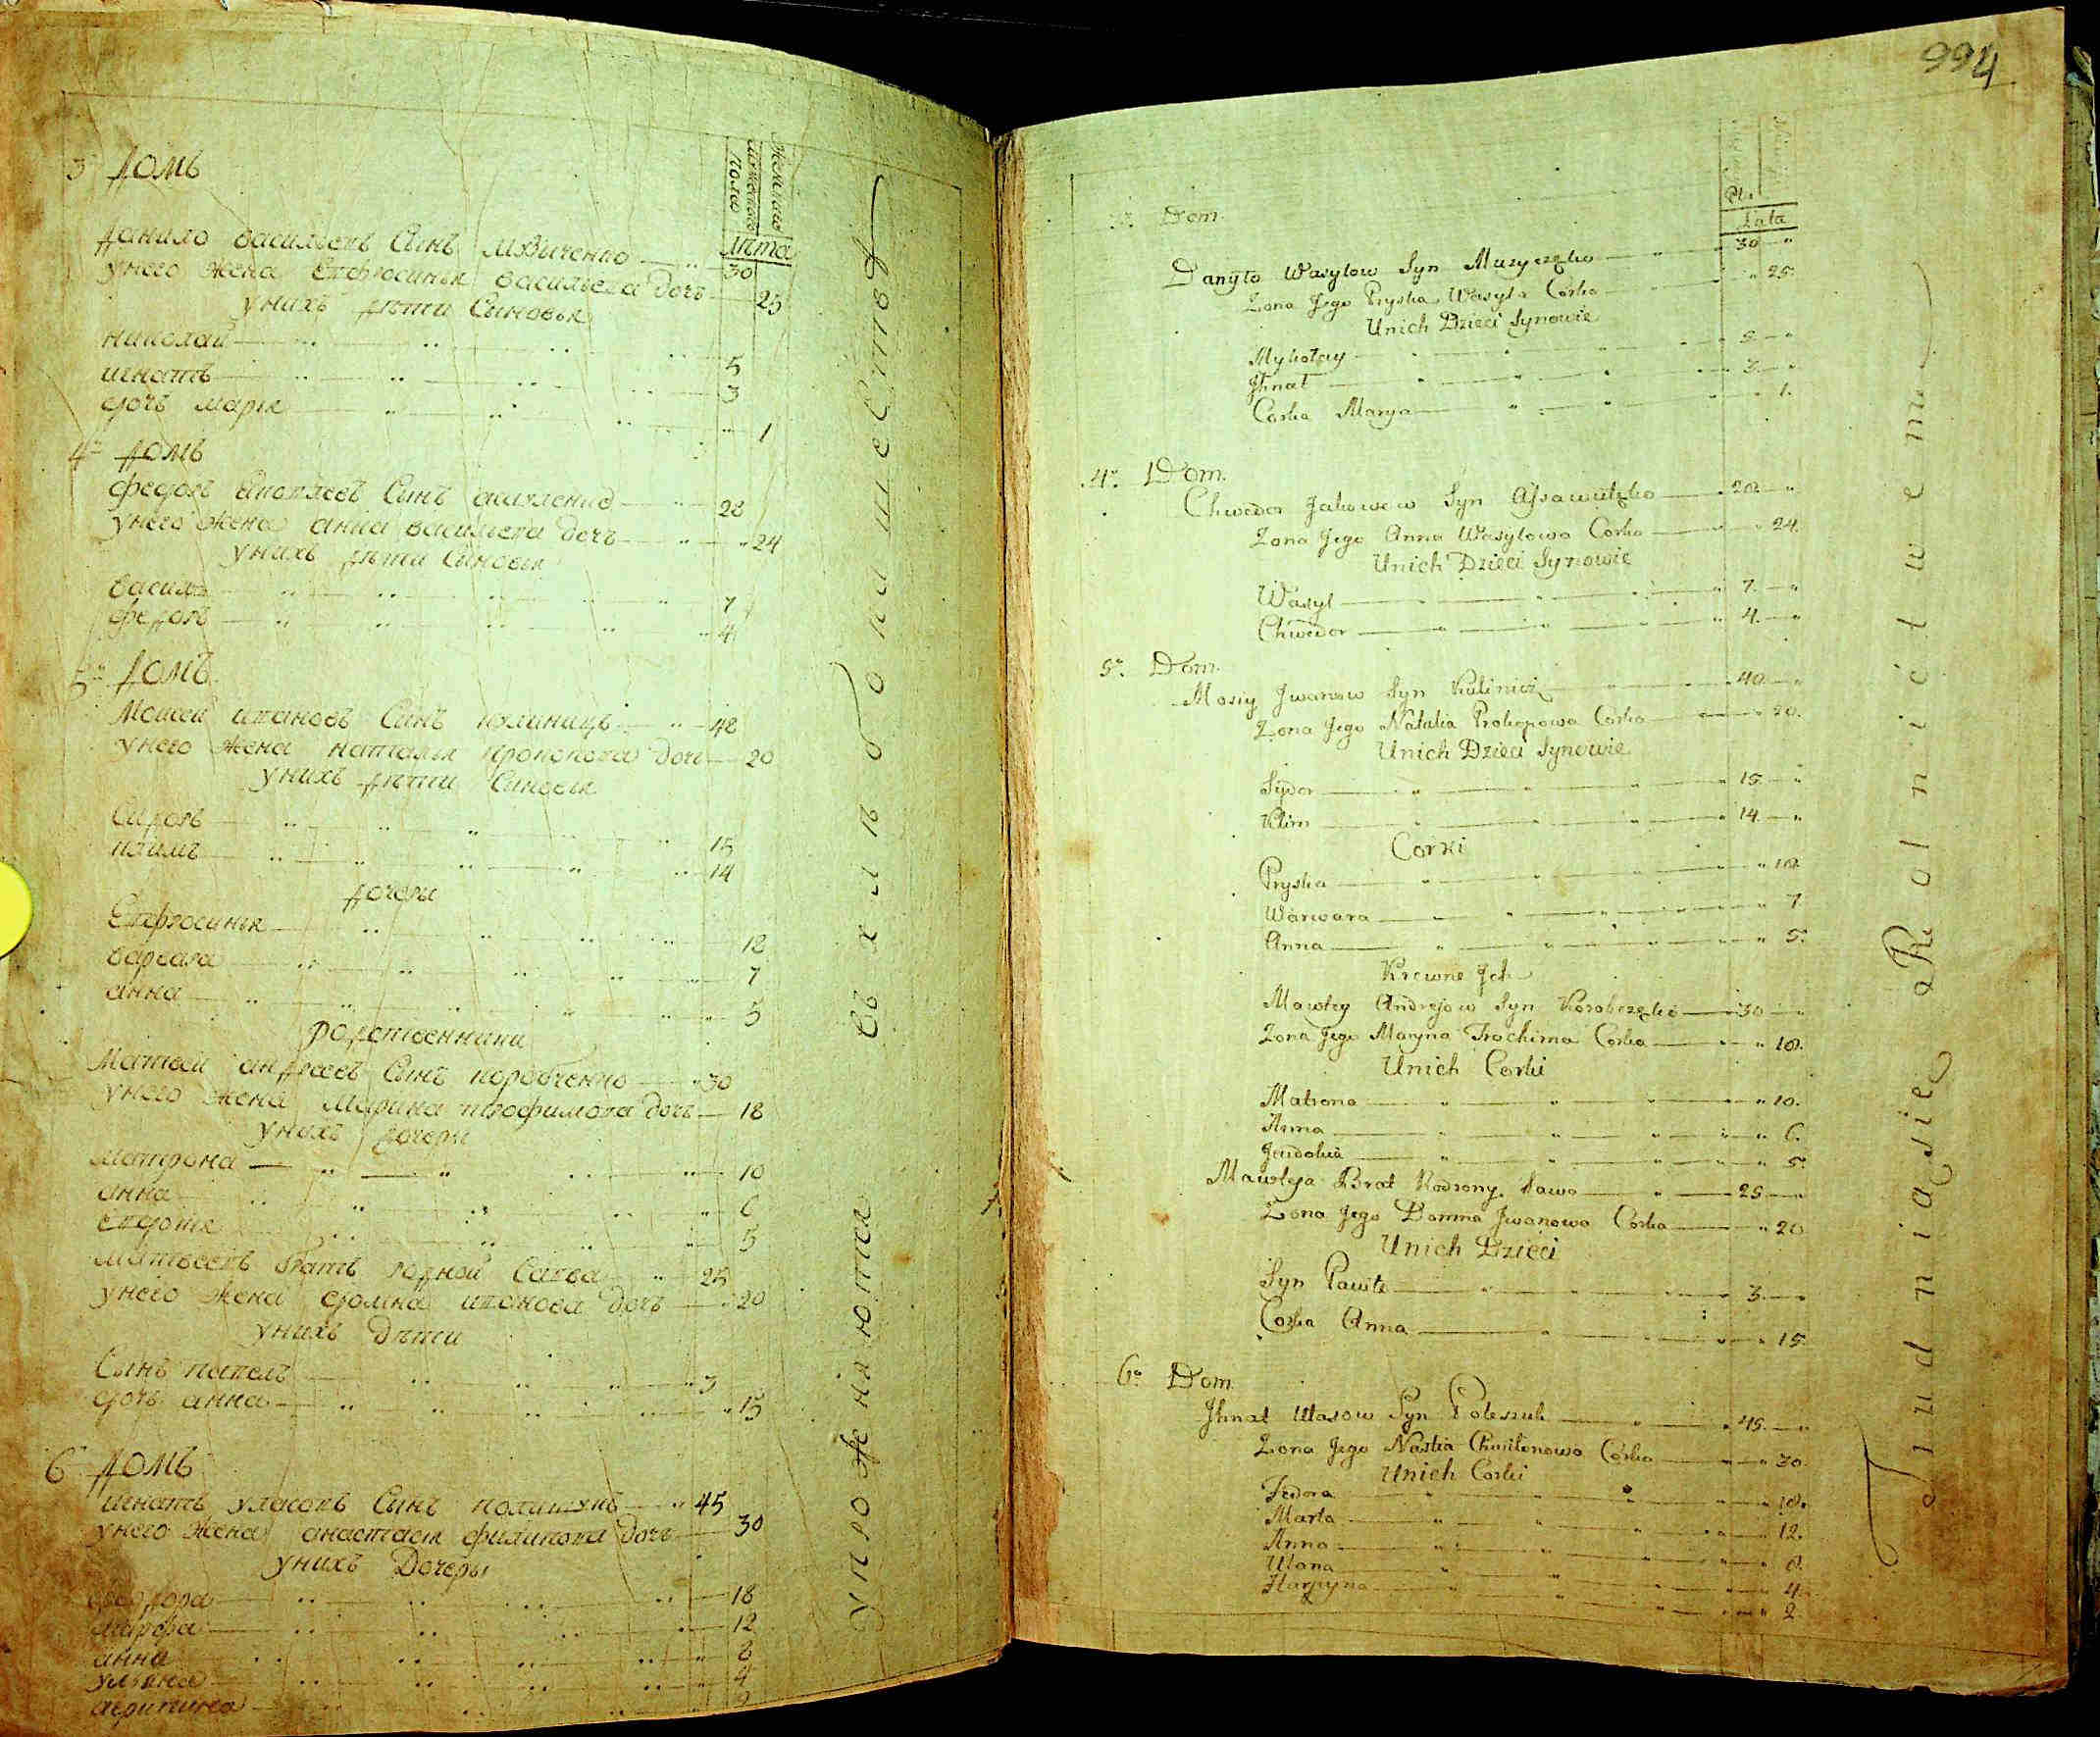 3 домъ
мужеска пола
женска
лѣта
Данило васильевъ Синъ — 30
унего жена Евфросинья васильева дочь — 25
унихъ дѣти Синовья
николай — 5
игнатъ — 3
дочь марія — 1
4 домъ
федоръ Синъ — 28
унего жена анна васильева дочь — 24
унихъ дѣти Синовья
василь — 7
федоръ — 4
5 домъ
Мойсей ивановъ Синъ калиничъ — 42
унего жена наталья прокопова дочь — 20
унихъ дѣти Синовья
Сидоръ — 15
климъ — 14
дочери
Евфросинья — 12
варвара — 7
анна — 5
родственники
Матвей андреевъ Синъ коробченко — 30
унего жена Марина трофимова дочь — 18
унихъ дочери
матрона — 10
анна — 6
евдокія — 5
матвеевъ братъ родной Савва — 25
унего жена домна иванова дочь — 20
унихъ дѣти
Синъ павелъ — 3
дочь анна — 15
6 домъ
игнатъ уласовъ Синъ полишукъ — 45
унего жена анастасія филипова дочь — 30
унихъ Дочеры
феодора — 18
марфа — 12
анна — 8
ульяна — 4
агрипина — 2
упражняются въ хлѣбопашествѣ
994
Dom.
Lata
Danyło Wasylow Syn Muzyczęko — 30
Zona Jego Pryska Wasyla Corka — 25
Unich Dzieci Synowie
Mykołay — 5
Jhnat — 3
Corka Marya — 1.
4º Dom.
Chwedor Jakowow Syn Assawulęko — 28
Zona Jego Anna Wasylowa Corka — 24.
Unich Dzieci Synowie
Wasyl — 7.
Chwedor — 4.
5º Dom.
Mosiy Jwanow Syn Kalinicz — 40
Zona Jego Natalia Prokopowa Corka — 20.
Unich Dzieci Synowie
Sydor — 15.
Klim — 14.
Corki
Pryska — 12.
Warwara — 7
Anna — 5.
Krewne Jch
Mawtey Andrejow Syn Korobczęko — 30
Zona Jego Maryna Trochima Corka — 18.
Unich Corki
Matrona — 10.
Anna — 6.
Jewdokia — 5.
Mawteja Brat Rodzony Sawa — 25
Zona Jego Domna Jwanowa Corka — 20
Unich Dzieci
Syn Pawło — 3.
Corka Anna — 15.
6º Dom
Jhnat Ulasow Syn Poleszuk — 45.
Zona Jego Nastia Chwilonowa Corka — 30.
Unich Corki
Fedora — 18.
Marta — 12.
Anna — 8.
Ulana — 4.
Harpyna — 2.
Trudniąsie Rolnictwem